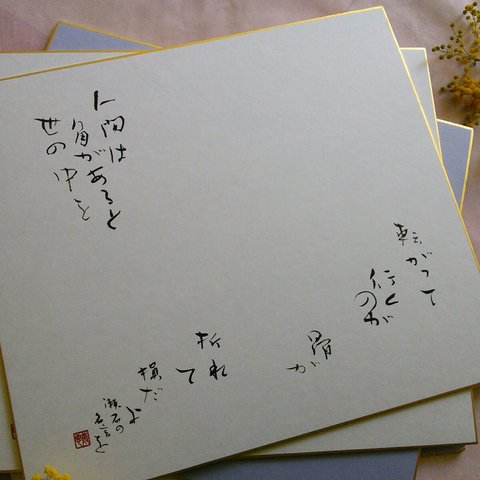 人間は
角があると
世の中を
転がって
行くのが
骨が
折れ
て
損だ
よ
漱石の
名言を